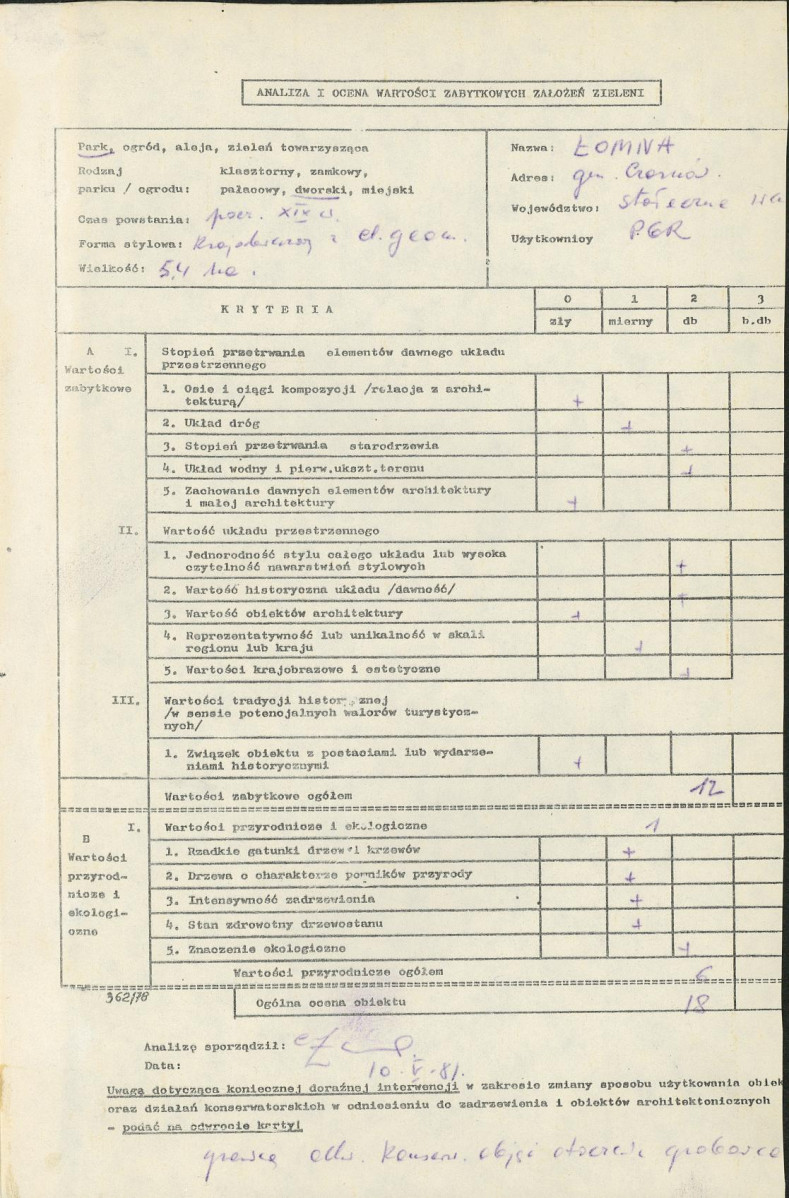 ANALIZA I OCENA WARTOŚCI ZABYTKOWYCH ZAŁOŻEŃ ZIELENI
Park, ogród, aleja, zieleń towarzysząca
Rodzaj klasztorny, zamkowy,
parku / ogrodu: pałacowy, dworski, miejski
Czas powstania: pocz. XIX w.
Forma stylowa: Krajobrazowy z el. geom.
Wielkość: 5,4 ha.
Nazwa: ŁOMNA
Adres: gm. Czosnów.
Województwo: stołeczne
Użytkownicy PGR
KRYTERIA
0 1 2 3
zły mierny db b.db
A I. Stopień przetrwania elementów dawnego układu
Wartości przestrzennego
zabytkowe 1. Osie i ciągi kompozycji /relacja z archi-
tekturą/ +
2. Układ dróg +
3. Stopień przetrwania starodrzewia +
4. Układ wodny i pierw.ukszt.terenu +
5. Zachowanie dawnych elementów architektury
i małej architektury +
II. Wartość układu przestrzennego
1. Jednorodność stylu całego układu lub wysoka
czytelność nawarstwień stylowych +
2. Wartość historyczna układu /dawność/ +
3. Wartość obiektów architektury +
4. Reprezentatywność lub unikalność w skali
regionu lub kraju +
5. Wartości krajobrazowe i estetyczne +
III. Wartości tradycji historycznej
/w sensie potencjalnych walorów turystycz-
nych/
1. Związek obiektu z postaciami lub wydarze-
niami historycznymi +
Wartości zabytkowe ogółem 12
I. Wartości przyrodnicze i ekologiczne 1
B
Wartości
przyrod-
nicze i
ekologi-
czne
1. Rzadkie gatunki drzew i krzewów +
2. Drzewa o charakterze pomników przyrody +
3. Intensywność zadrzewienia +
4. Stan zdrowotny drzewostanu +
5. Znaczenie ekologiczne +
Wartości przyrodnicze ogółem 6
362/78
Ogólna ocena obiektu 18
Analizę sporządził:
Data: 10.V.81.
Uwagę dotycząca koniecznej doraźnej interwencji w zakresie zmiany sposobu użytkowania obiek
oraz działań konserwatorskich w odniesieniu do zadrzewienia i obiektów architektonicznych
- podać na odwrocie karty!
konserw. objąć